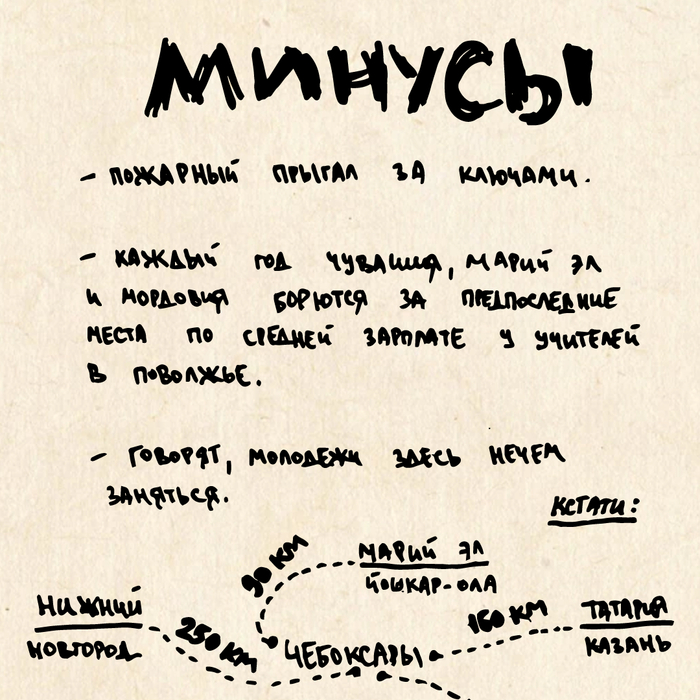 МИНУСЫ
- ПОЖАРНЫЙ ПРЫГАЛ ЗА КЛЮЧАМИ.
- КАЖДЫЙ ГОД ЧУВАШИЯ, МАРИЙ ЭЛ
И МОРДОВИЯ БОРЮТСЯ ЗА ПРЕДПОСЛЕДНИЕ
МЕСТА ПО СРЕДНЕЙ ЗАРПЛАТЕ У УЧИТЕЛЕЙ
В ПОВОЛЖЬЕ.
- ГОВОРЯТ, МОЛОДЕЖИ ЗДЕСЬ НЕЧЕМ
ЗАНЯТЬСЯ.
КСТАТИ:
90 КМ
МАРИЙ ЭЛ
ЙОШКАР-ОЛА
НИЖНИЙ
НОВГОРОД
250 КМ
ЧЕБОКСАРЫ
160 КМ
ТАТАРИЯ
КАЗАНЬ